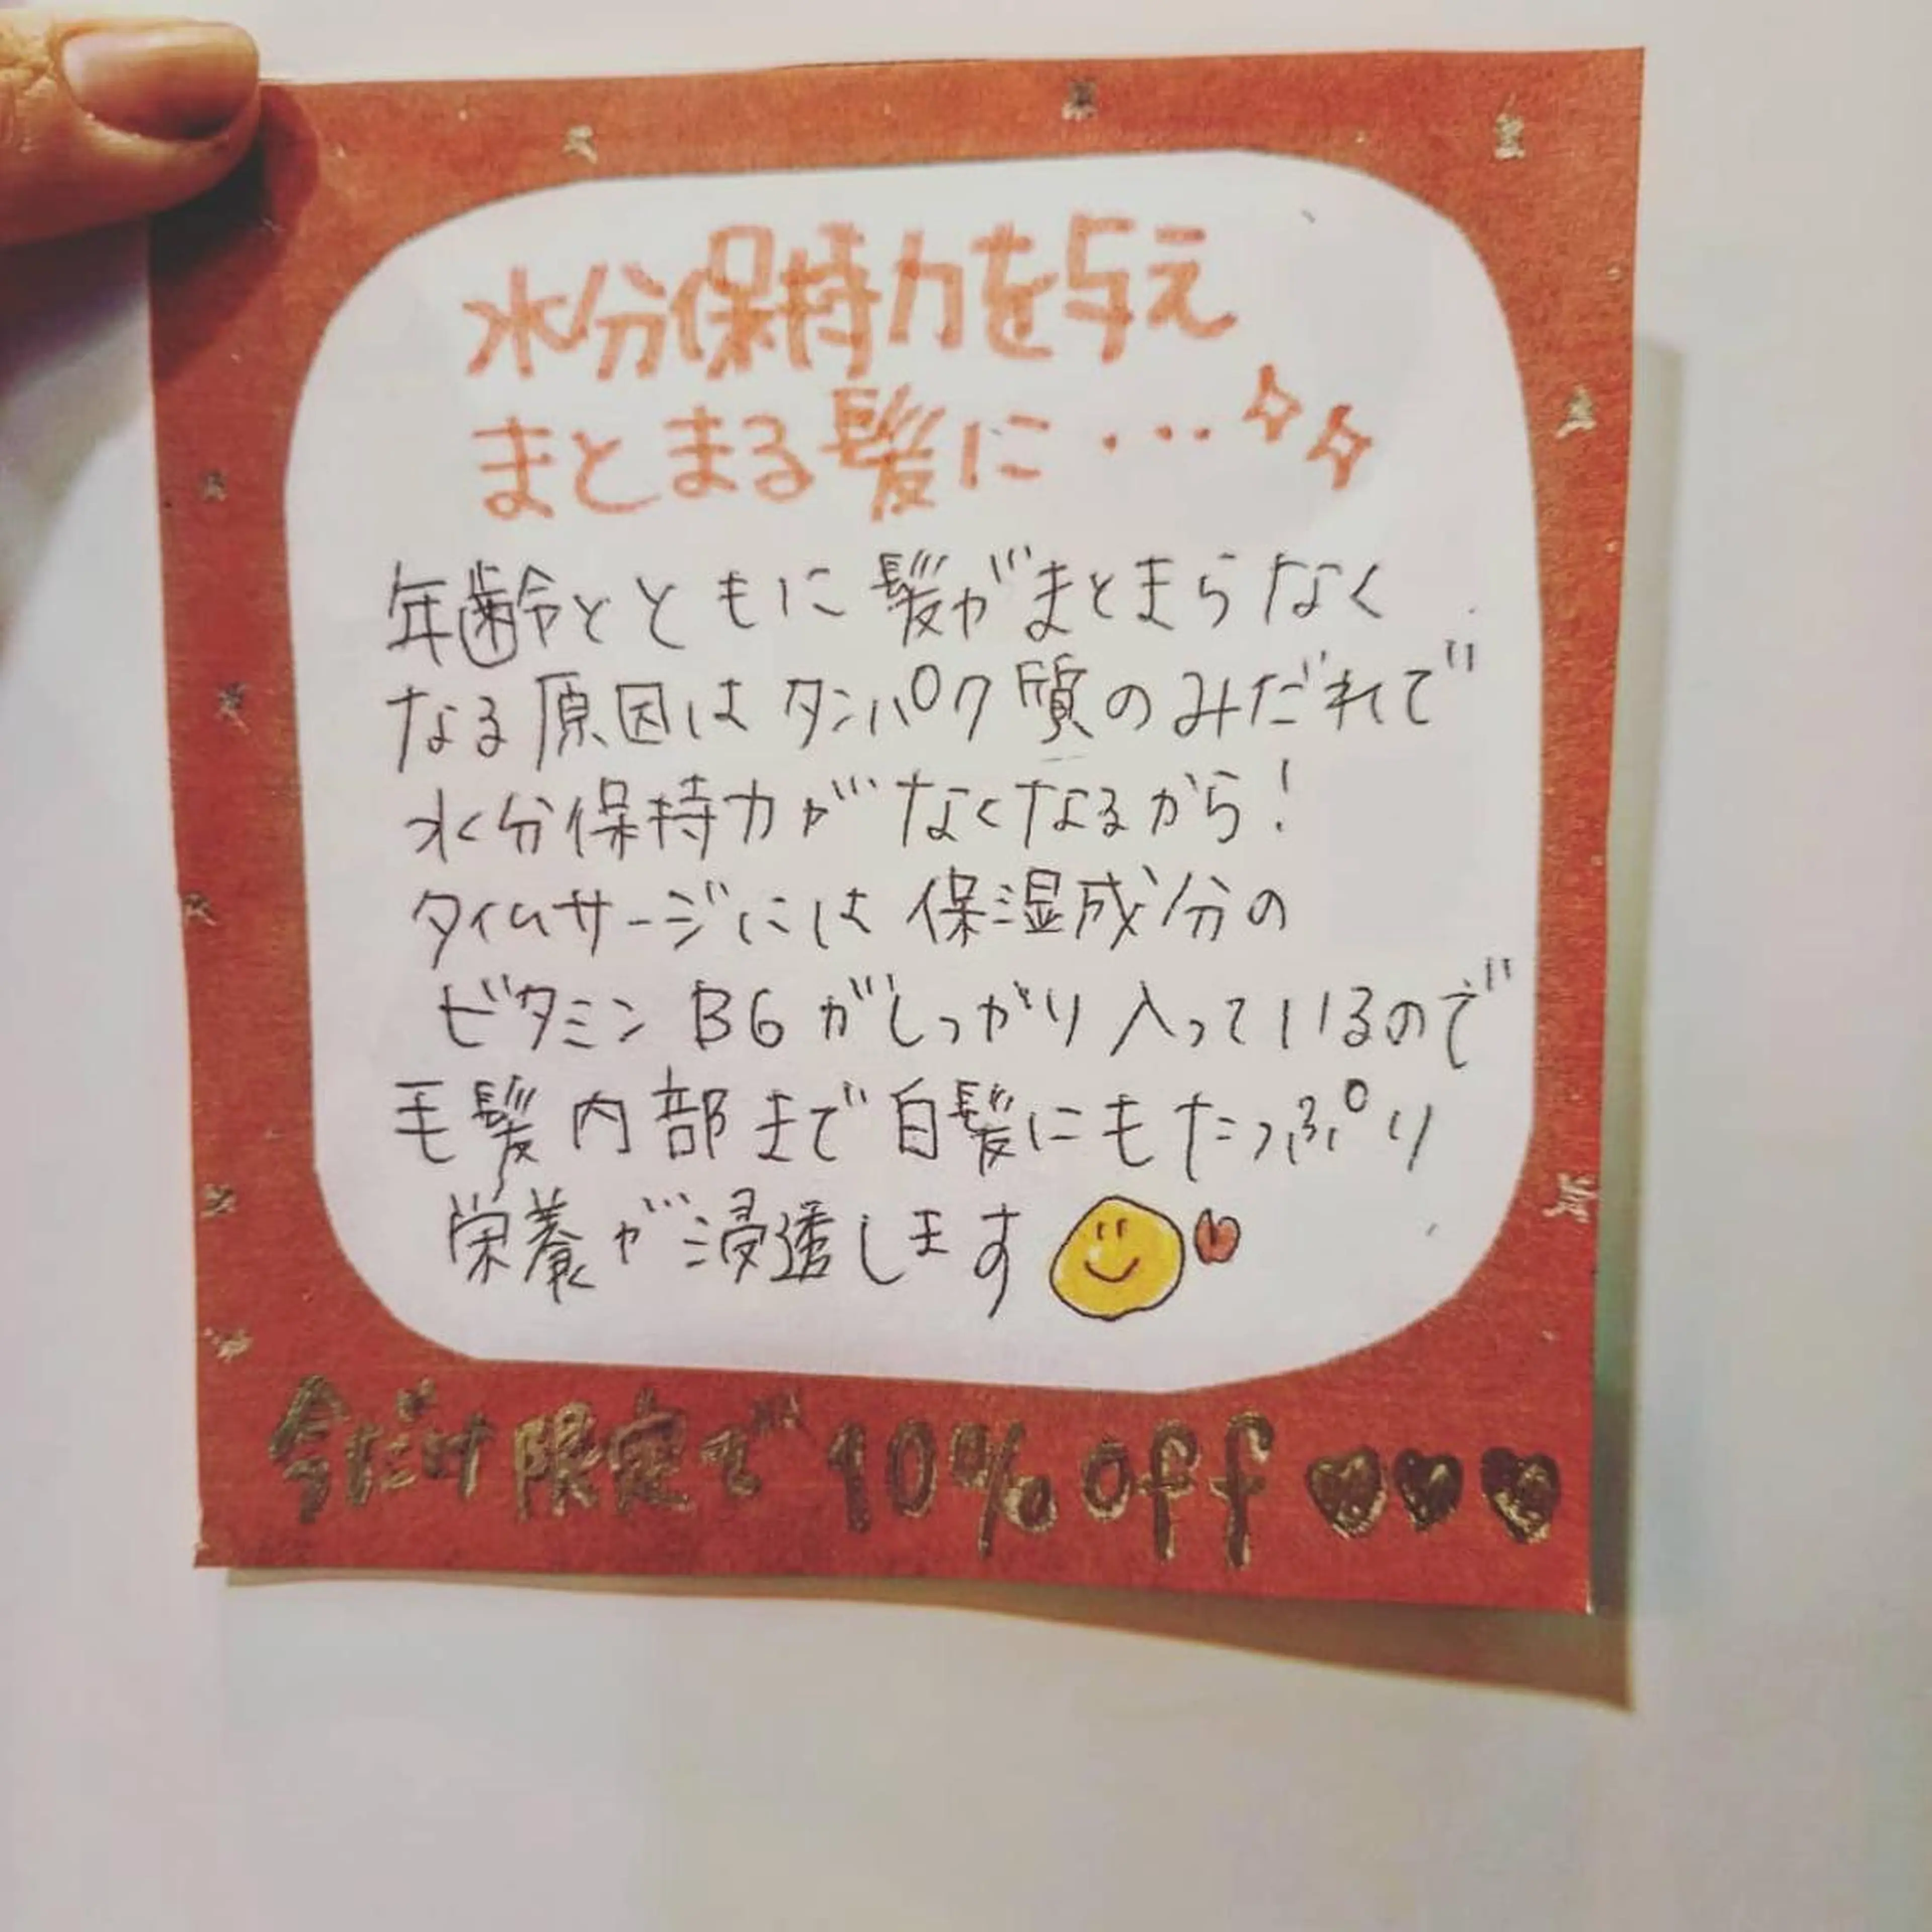 水分保持力を与え
まとまる髪に…
年齢とともに髪がまとまらなく
なる原因はタンパク質のみだれで
水分保持力がなくなるから!
タイムサージには保湿成分の
ビタミンB6がしっかり入っているので
毛髪内部まで白髪にもたっぷり
栄養が浸透します
今だけ限定で10%off